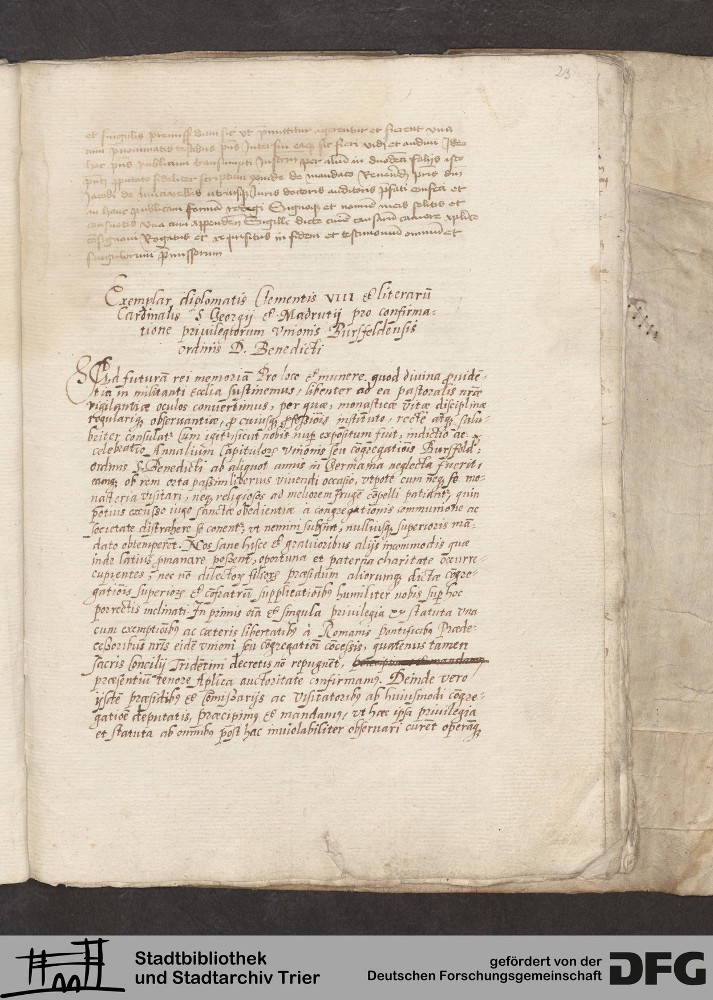 23
et singulis premissis dum sic ut premittitur agerentur et fierent una
cum prenominatis testibus pñs interfui eaq̃ sic fieri vidi et audivi Ideo
hoc pñs publicum transumpti Instrm̃ per aliũ in
fideliter scriptum de mandato Reverendi pris dñi
Jacobi de utriusq̃ Juris doctoris auditoris pfati confeci et
in hanc publicam formã redegi Signoq̃ et nomine meis solitis et
consuetis una cum appensioñ Sigilli dicte curie causarũ camere aplice
cõsignavi Rogatus et requisitus in fidem et testimoniũ omniũ et
singulorum p̃missorum
Exemplar diplomatis Clementis VIII & literarũ
Cardinalis S Georgij & Madrutij pro confirma-
tione privilegiorum Unionis Bursfeldensis
ordinis D. Benedicti
Ad futurã rei memoriã Pro loco & munere, quod divina p̃uidẽ-
tia in militanti Ecclia sustinemus, libenter ad ea pastoralis nrãe
vigilantiæ oculos convertimus, per quæ, monasticæ vitæ disciplinæ
regularisq̃ observantiæ, p̃ cuiusq̃ p̃fessiõis instituto, rectè atq̃ salu-
briter consulat᷑ Cum igit᷑, sicut nobis nup̃ expositum fuit, indictio ac
celebratio Annalium Capitulorũ Unionis seu cõgregatiõis Bursfeld:
ordinis S. Benedicti ab aliquot annis in Germania neglecta fuerit,
eamq̃ ob rem orta passim liberius vivendi occasio, utpote cum neq̃ se mo-
nasteria visitari, neq̃ religiosos ad meliorem frugẽ cõpelli patiãt᷑, quin
potius excusso iugo sanctæ obedientiæ à congregationis communione ac
societate distrahere se conent᷑, ut nemini subsint, nulliusq̃ superioris mã-
dato obtemperẽt. Nos sane hisce & gravioribus alijs incommodis quæ
inde latius p̃manare possent, oportuna et paterna charitate occurre-
re cupientes, nec nõ dilectorũ filiorũ præsidum aliorumq̃ dictæ cõgre-
gatiõis superiorũ & cõfratrũ supplicatiõibꝫ humiliter nobis sup hoc
porrectis inclinati. In primis oĩa & singula privilegia & statuta una
cum exemptiõibꝫ ac cæteris libertatibꝫ à Romanis Pontificibꝫ Præde-
cessoribus nrĩs eidẽ unioni seu cõgregationi cõcessis, quatenus tamen
sacris Concilij Tridetini decretis nõ repugnẽt,
præsentium tenore Aplica auctoritate confirmamꝰ. Deinde vero
ijsdẽ præsidibꝫ & Cõmissarijs ac Visitatoribꝫ ab huiusmodi cõgre-
gatiõe deputatis, præcipimꝰ & mandamꝰ, ut hæc ipsa privilegia
et statuta ab omnibꝫ post hac inviolabiliter observari curẽt operãq̃
Stadtbibliothek
und Stadtarchiv Trier
gefördert von der
Deutschen Forschungsgemeinschaft
DFG